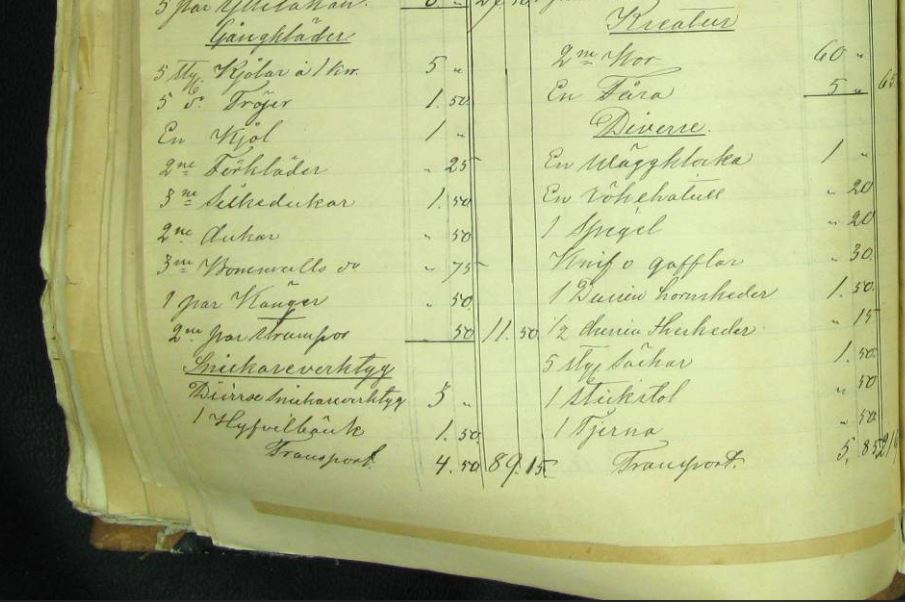 5 par
Gångkläder
5 stÿ. Kjolar à 1 kr. 5 "
5 d:o Tröjer 1.50
En Kjol 1 "
2ne Förkläder " 25
3ne Silkedukar 1.50
2ne dukar " 50
3ne Bomulls do " 75
1 par Kängor " 50
2ne par Strumpor 50 11.50
Snickareverktyg
Diverse Snickareverktyg 3 "
1 Hyfvelbänk 1.50
Transport. 4.50 89.15
Kreatur
2ne Kor 60 "
En Fåra 5 " 65
Diverse.
En Wäggklocka 1 "
En " 20
1 Spegel " 20
Knif o gafflar " 30
1 Dussin hornskeder 1.50
1/2 " 15
5 stÿ Säckar 1.50
1 Stickstol " 50
1 Tjerna " 50
Transport. 5.85